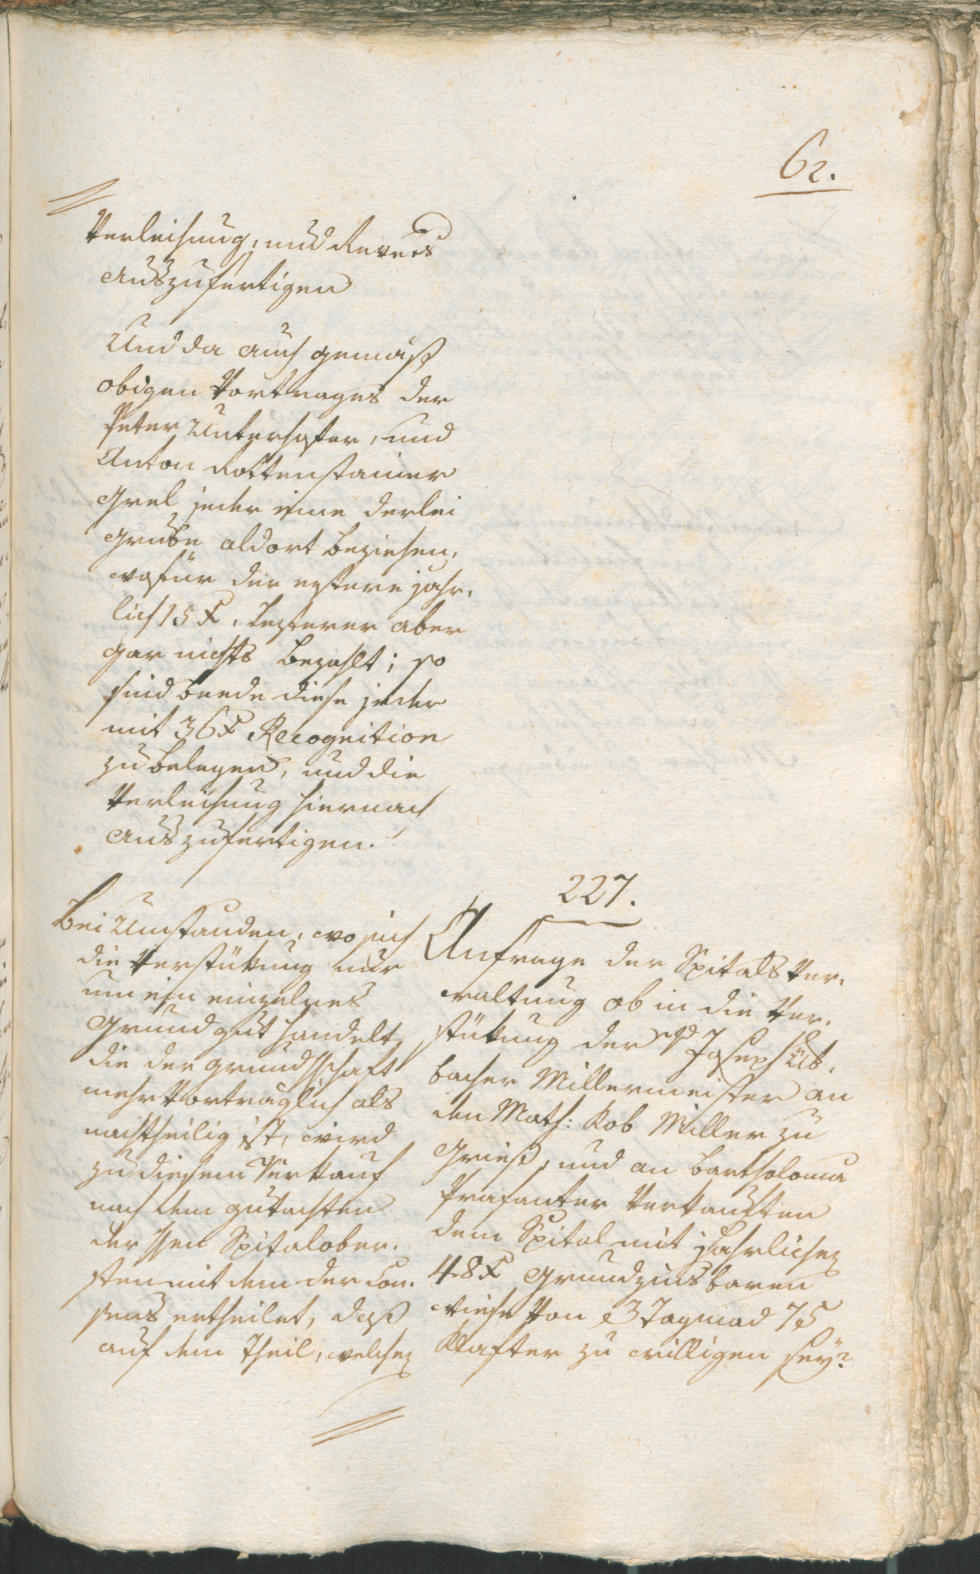 62.
Verleihung, und Revers
auszufertigen
Und da auch gemäß
obigen Vortrages der
Peter Unterhofer, und
Anton Rottenstainer
Grel jeder eine derlei
Grube aldort beziehen,
wofür der erstere jähr,
lich 15 X, lezterer aber
gar nichts bezahlt; so
sind beede diese jeder
mit 36 X Recognition
zu belegen, und die
Verleihung hiernach
auszufertigen.
Bei Umständen, wo sich
die Verstükung nur
um ein einzelnes
Grundgut handelt,
die der Grundschaft
mehr vorträglich als
nachtheilig ist, wird
zu diesem Verkauf
nach dem Gutachten
der Hen Spitalober-
sten mit dem der Con-
sens ertheilet, daß
auf dem Theil, welchez
227.
Anfrage der Spitals Ver,
waltung ob in die Ver,
stükung der v Joseph
bacher Millermeister an
den Math: Rob Miller zu
Grieß, und an Bartholomä
Prafanter verkauften
dem Spital mit jährlichez
48 X grundzinsbaren
Wiese von 3 Tagmad 75
Klafter zu willigen sey?